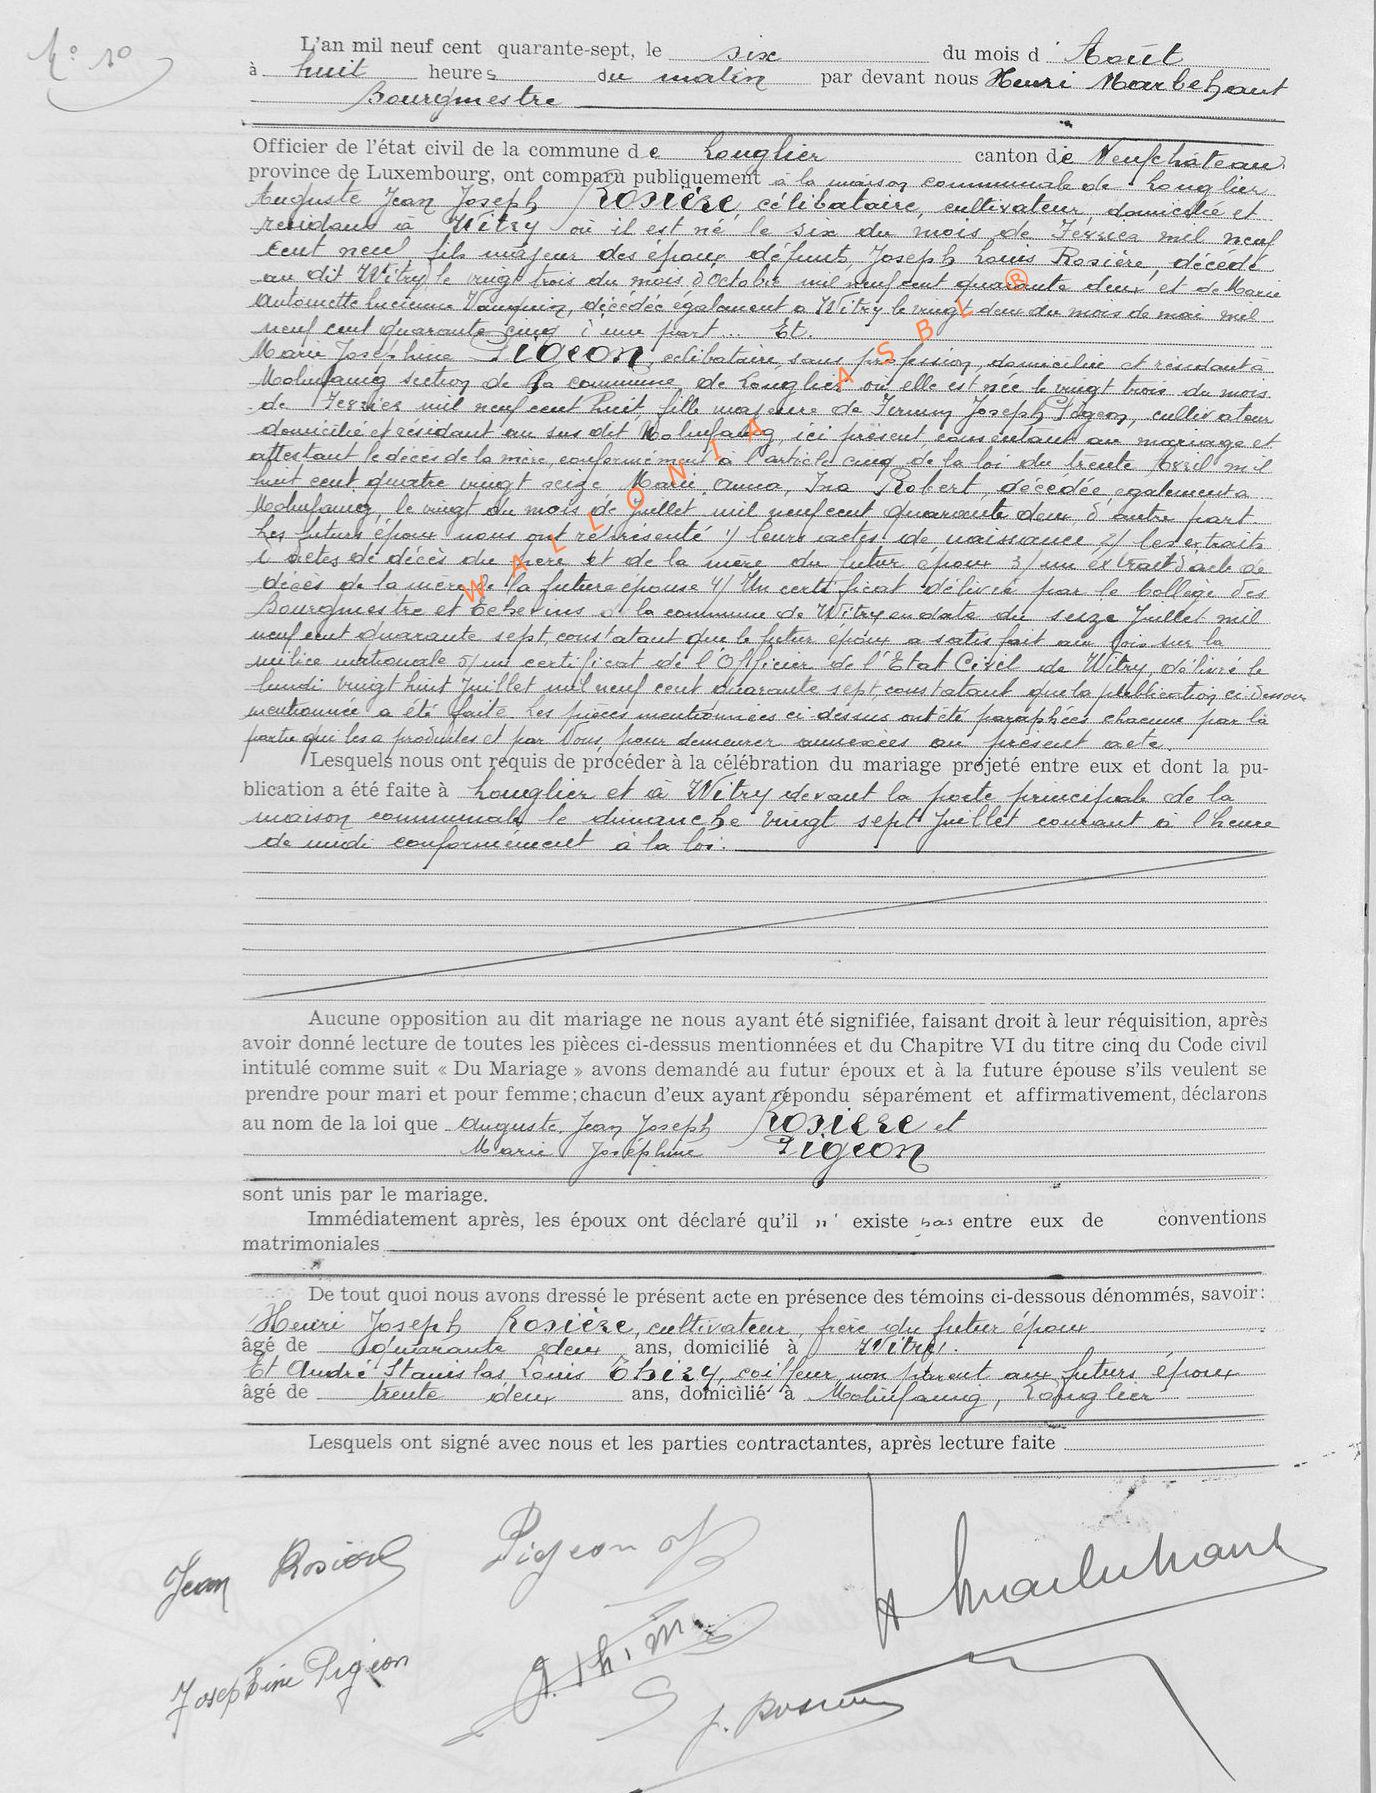 N° 10
L'an mil neuf cent quarante-sept, le six du mois d' Août
à huit heures du matin par devant nous Henri Marbehant
Bourgmestre
Officier de l'état civil de la commune de Longlier canton de Neufchâteau
province de Luxembourg, ont comparu publiquement à la maison communale de Longlier
Auguste Jean Joseph Rosière, célibataire, cultivateur, domicilié et
résidant à Witry où il est né le six du mois de Février mil neuf
cent neuf, fils majeur des époux défunts, Joseph Louis Rosière, décédé
au dit Witry le vingt trois du mois d'Octobre mil neuf cent quarante deux et de Marie
Antoinette Lucienne décédée egalement a Witry le vingt deux du mois de mai mil
neuf cent quarante cinq d'une part... Et.
Marie Joséphine Pigeon, célibataire, sans profession, domiciliée et résidant à
Molinfaing section de la commune de Longlier où elle est née le vingt trois du mois
de Février mil neuf cent huit, fille majeure de Firmin Joseph Pigeon, cultivateur
domicilié et résidant au sus dit Molinfaing, ici présent consentant au mariage et
attestant le décès de la mère, conformément à l'article cinq de la loi du trente Avril mil
huit cent quatre vingt seize Marie, Anna, Ina Robert, décédée egalement a
Molinfaing, le vingt du mois de juillet mil neuf cent quarante deux d'autre part.
Les futurs époux nous ont représenté 1/ leurs actes de naissance 2/ les extraits
d'actes de décès du père et de la mère du futur époux 3/ un extrait d'acte de
décès de la mère de la future épouse 4/ Un certificat délivré par le Collège des
Bourgmestre et Echevins de la commune de Witry en date du seize Juillet mil
neuf cent quarante sept, constatant que le futur époux a satisfait aux lois sur la
milice nationale 5/ un certificat de l'Officier de l'Etat Civil de Witry, délivré le
lundi vingt huit Juillet mil neuf cent quarante sept, constatant que la publication ci-dessous
mentionnée a été faite. Les pièces mentionnées ci-dessus ont été paraphées chacune par la
partie qui les a produites et par Nous pour demeurer annexées au présent acte.
Lesquels nous ont requis de procéder à la célébration du mariage projeté entre eux et dont la pu-
blication a été faite à Longlier et à Witry devant la porte principale de la
maison communale le dimanche vingt sept Juillet courant à l'heure
de midi conformément à la loi.
Aucune opposition au dit mariage ne nous ayant été signifiée, faisant droit à leur réquisition, après
avoir donné lecture de toutes les pièces ci-dessus mentionnées et du Chapitre VI du titre cinq du Code civil
intitulé comme suit « Du Mariage » avons demandé au futur époux et à la future épouse s'ils veulent se
prendre pour mari et pour femme; chacun d'eux ayant répondu séparément et affirmativement, déclarons
au nom de la loi que Auguste, Jean Joseph Rosière et
Marie Joséphine Pigeon
sont unis par le mariage.
Immédiatement après, les époux ont déclaré qu'il n' existe pas entre eux de conventions
matrimoniales
De tout quoi nous avons dressé le présent acte en présence des témoins ci-dessous dénommés, savoir:
Henri Joseph Rosière, cultivateur, frère du futur époux
âgé de quarante deux ans, domicilié à Witry.
Et André Stanislas Louis Thiry, coiffeur, non parent aux futurs époux
âgé de trente deux ans, domicilié à Molinfaing, Longlier
Lesquels ont signé avec nous et les parties contractantes, après lecture faite
Jean Rosière
Pigeon
H Marbehant
Joséphine Pigeon
J. Rosière
WALLONIA ASBL ®